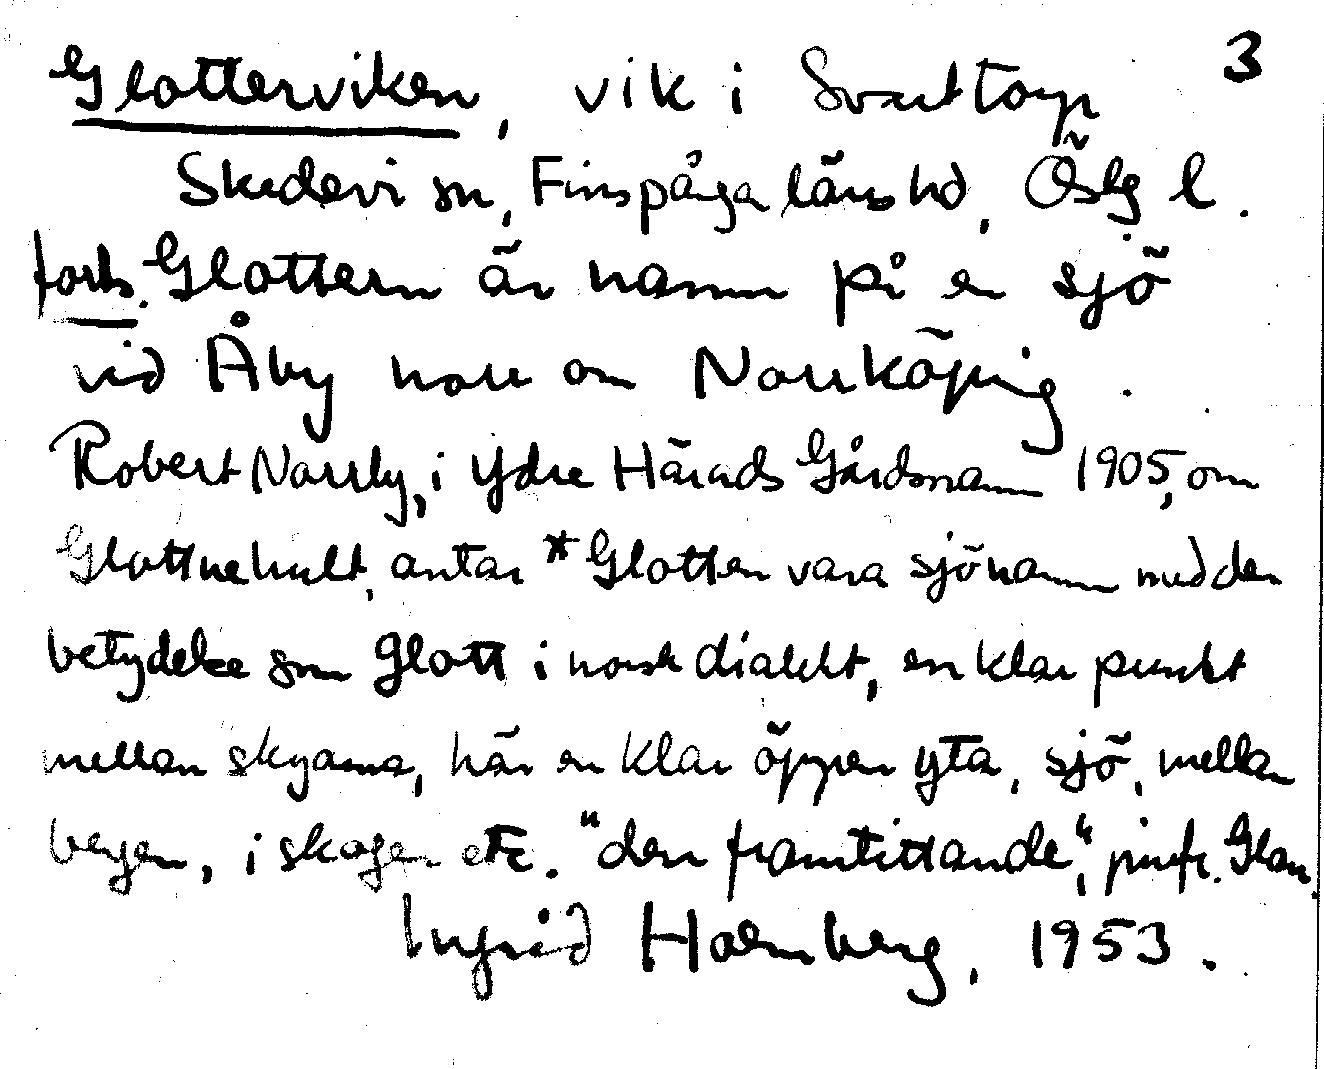 3
Glotterviken, vik i Svarttorp
Skedevi sn, Finspånga läns hd, Östg l.
forts. Glottern är namn på en sjö
vid Åby norr om Norrköping.
Robert Norrby, i Ydre Härads Gårdsnamn 1905, om
Glottnehult, antar *Glotten vara sjönamn med den
betydelse som glott i norsk dialekt, en klar punkt
mellan skyarna, här en klar öppen yta, sjö, mellan
bergen, i skogen etc. "den framtittande", jmfr. Glan.
Ingrid Holmberg, 1953.